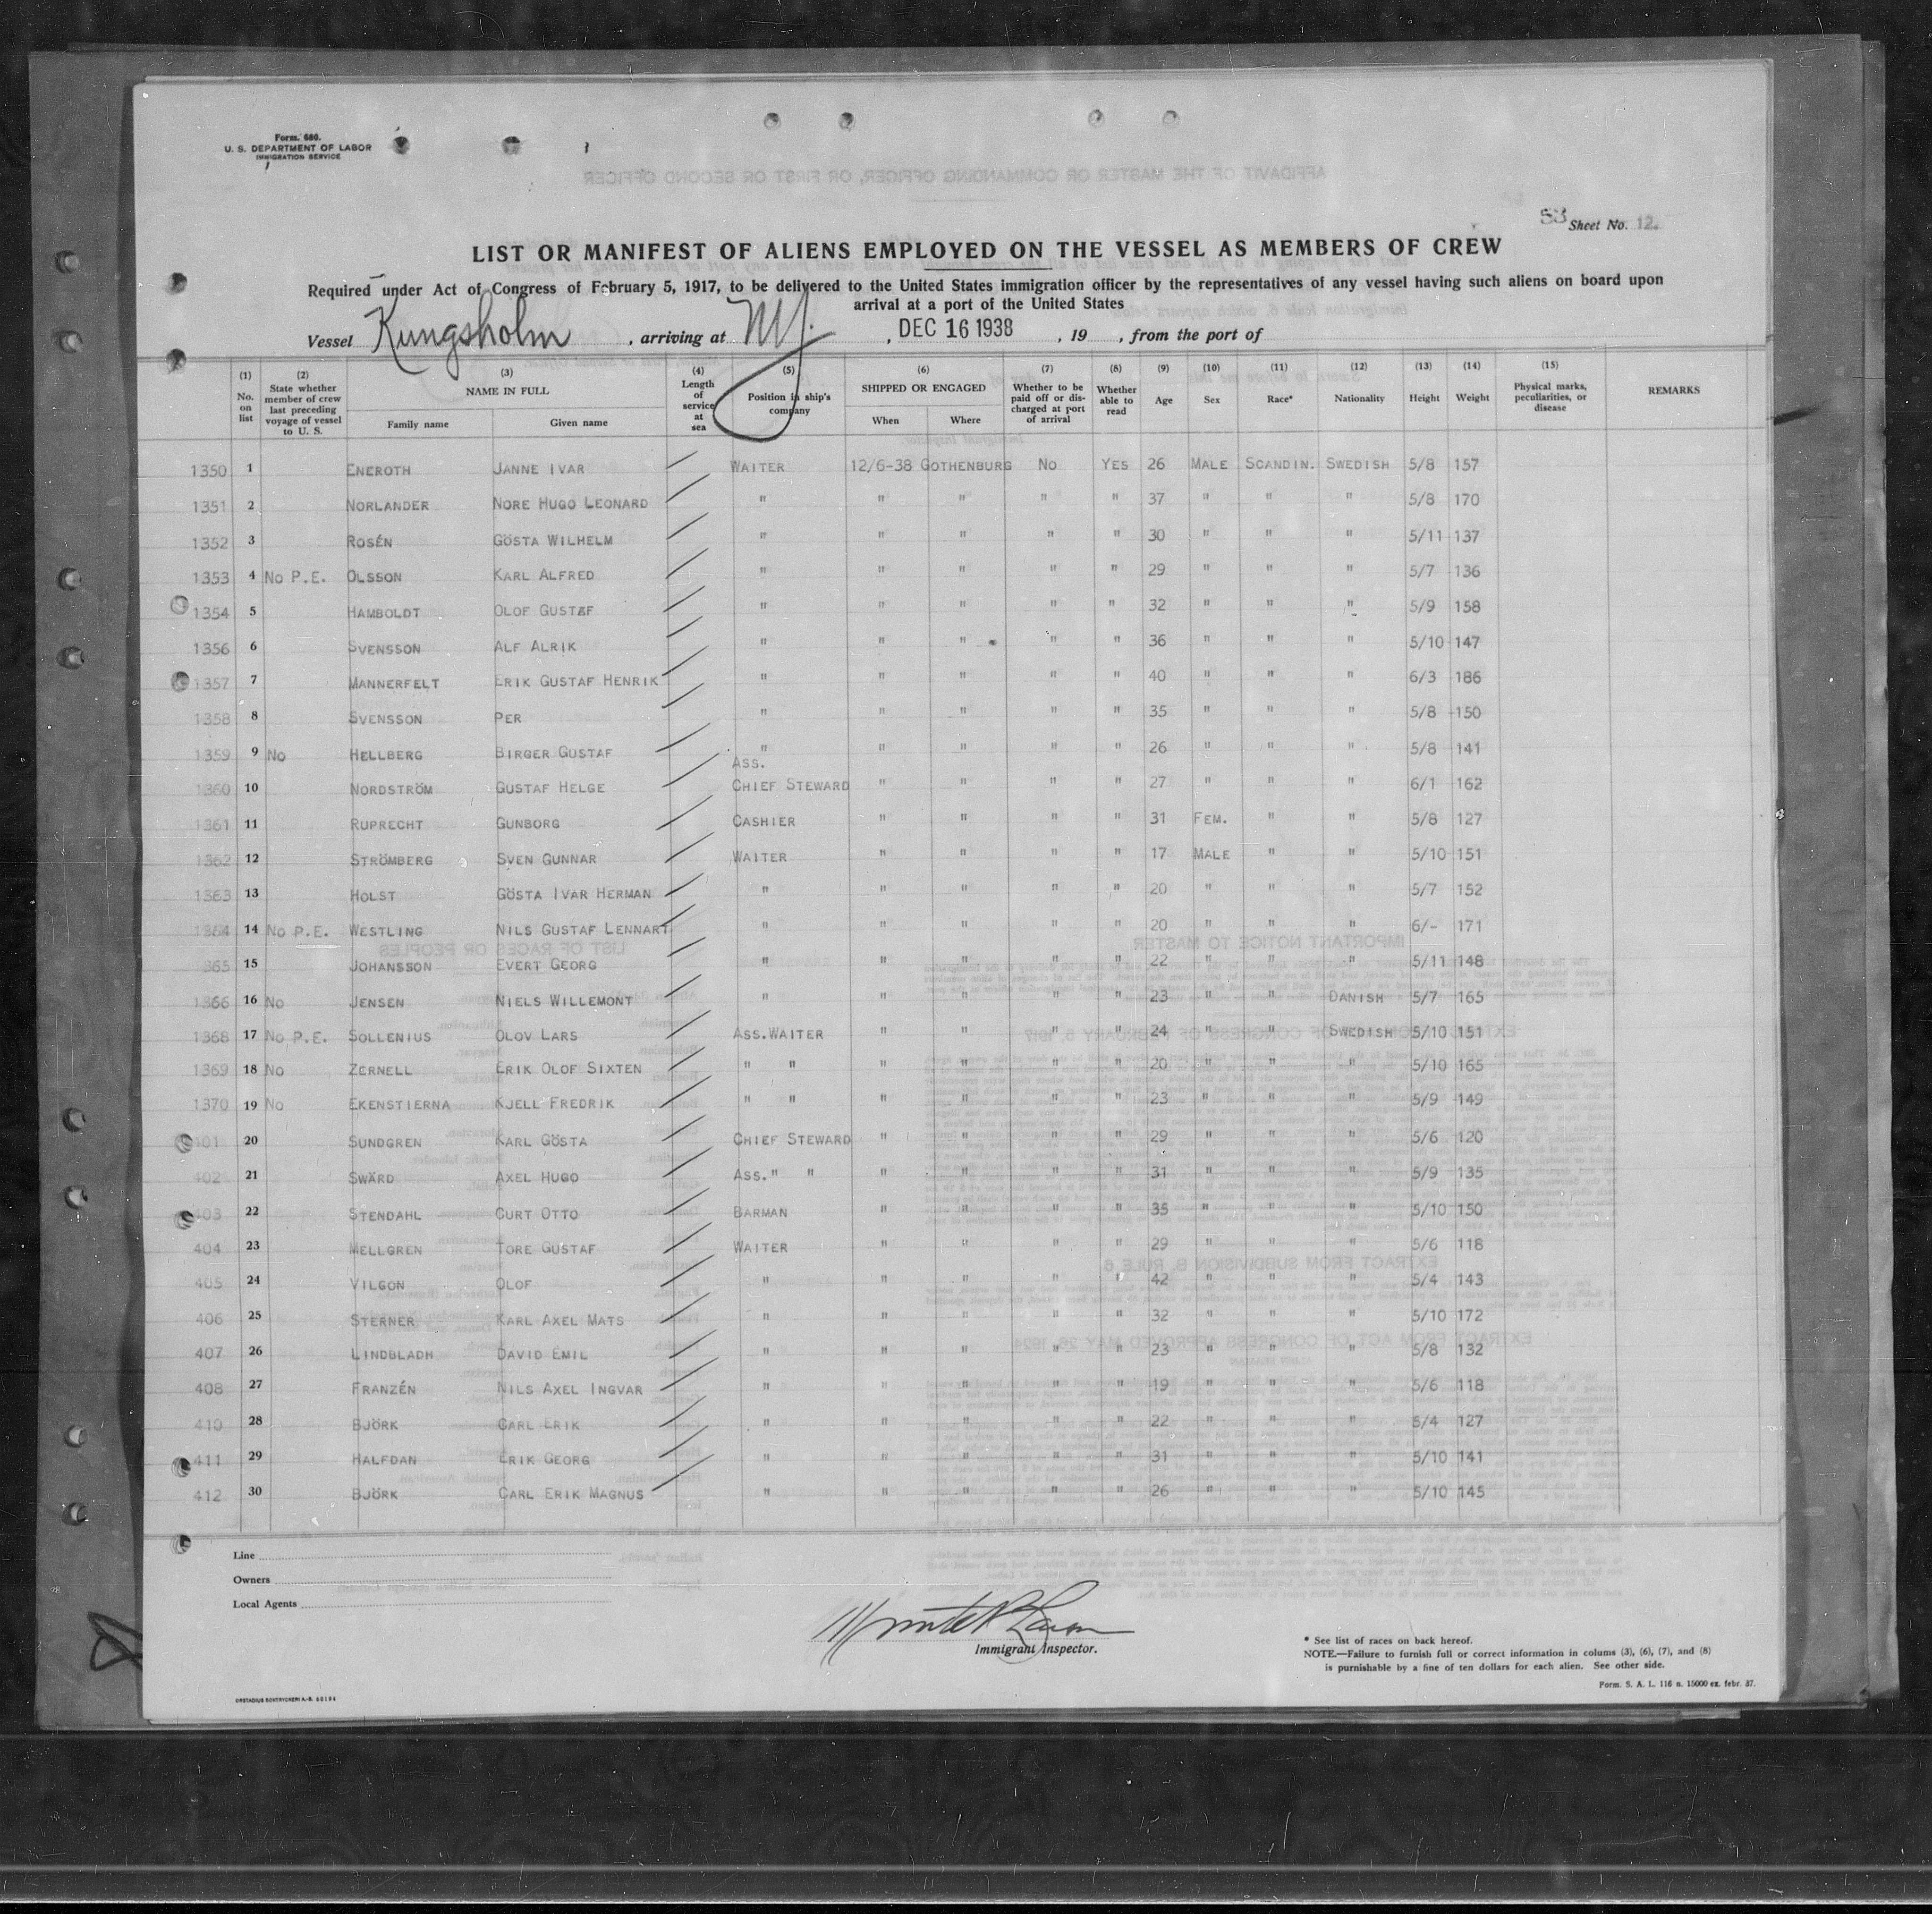 Form. 680.
U. S. DEPARTMENT OF LABOR
IMMIGRATION SERVICE
53 Sheet No. 12.
LIST OR MANIFEST OF ALIENS EMPLOYED ON THE VESSEL AS MEMBERS OF CREW
Required under Act of Congress of February 5, 1917, to be delivered to the United States immigration officer by the representatives of any vessel having such aliens on board upon
arrival at a port of the United States
Vessel Kungsholm , arriving at NY. , DEC 16 1938 , 19 , from the port of
(1) No. on list (2) State whether member of crew last preceding voyage of vessel to U. S. (3) NAME IN FULL Family name Given name (4) Length of service at sea (5) Position in ship's company (6) SHIPPED OR ENGAGED When Where (7) Whether to be paid off or discharged at port of arrival (8) Whether able to read (9) Age (10) Sex (11) Race* (12) Nationality (13) Height (14) Weight (15) Physical marks, peculiarities, or disease REMARKS
1350 1 ENEROTH JANNE IVAR WAITER 12/6-38 GOTHENBURG NO YES 26 MALE SCANDIN. SWEDISH 5/8 157
1351 2 NORLANDER NORE HUGO LEONARD " " " " " 37 " " " 5/8 170
1352 3 ROSÉN GÖSTA WILHELM " " " " " 30 " " " 5/11 137
1353 4 NO P.E. OLSSON KARL ALFRED " " " " " 29 " " " 5/7 136
1354 5 HAMBOLDT OLOF GUSTAF " " " " " 32 " " " 5/9 158
1356 6 SVENSSON ALF ALRIK " " " " " 36 " " " 5/10 147
1357 7 MANNERFELT ERIK GUSTAF HENRIK " " " " " 40 " " " 6/3 186
1358 8 SVENSSON PER " " " " " 35 " " " 5/8 150
1359 9 NO HELLBERG BIRGER GUSTAF " " " " " 26 " " " 5/8 141
1360 10 NORDSTRÖM GUSTAF HELGE ASS. CHIEF STEWARD " " " " 27 " " " 6/1 162
1361 11 RUPRECHT GUNBORG CASHIER " " " " 31 FEM. " " 5/8 127
1362 12 STRÖMBERG SVEN GUNNAR WAITER " " " " 17 MALE " " 5/10 151
1363 13 HOLST GÖSTA IVAR HERMAN " " " " " 20 " " " 5/7 152
1364 14 NO P.E. WESTLING NILS GUSTAF LENNART " " " " " 20 " " " 6/- 171
365 15 JOHANSSON EVERT GEORG " " " " " 22 " " " 5/11 148
1366 16 NO JENSEN NIELS WILLEMONT " " " " " 23 " " DANISH 5/7 165
1368 17 NO P.E. SOLLENIUS OLOV LARS ASS.WAITER " " " " 24 " " SWEDISH 5/10 151
1369 18 NO ZERNELL ERIK OLOF SIXTEN " " " " " " 20 " " " 5/10 165
1370 19 NO EKENSTIERNA KJELL FREDRIK " " " " " " 23 " " " 5/9 149
401 20 SUNDGREN KARL GÖSTA CHIEF STEWARD " " " " 29 " " " 5/6 120
402 21 SWÄRD AXEL HUGO ASS. " " " " " " 31 " " " 5/9 135
403 22 STENDAHL CURT OTTO BARMAN " " " " 35 " " " 5/10 150
404 23 MELLGREN TORE GUSTAF WAITER " " " " 29 " " " 5/6 118
405 24 VILGON OLOF " " " " " 42 " " " 5/4 143
406 25 STERNER KARL AXEL MATS " " " " " 32 " " " 5/10 172
407 26 LINDBLADH DAVID EMIL " " " " " 23 " " " 5/8 132
408 27 FRANZÉN NILS AXEL INGVAR " " " " " 19 " " " 5/6 118
410 28 BJÖRK CARL ERIK " " " " " 22 " " " 5/4 127
411 29 HALFDAN ERIK GEORG " " " " " 31 " " " 5/10 141
412 30 BJÖRK CARL ERIK MAGNUS " " " " " 26 " " " 5/10 145
Line
Owners
Local Agents
Immigrant Inspector.
* See list of races on back hereof.
NOTE.—Failure to furnish full or correct information in colums (3), (6), (7), and (8)
is punishable by a fine of ten dollars for each alien. See other side.
Form. S. A. L. 116 n. 15000 ex. febr. 37.